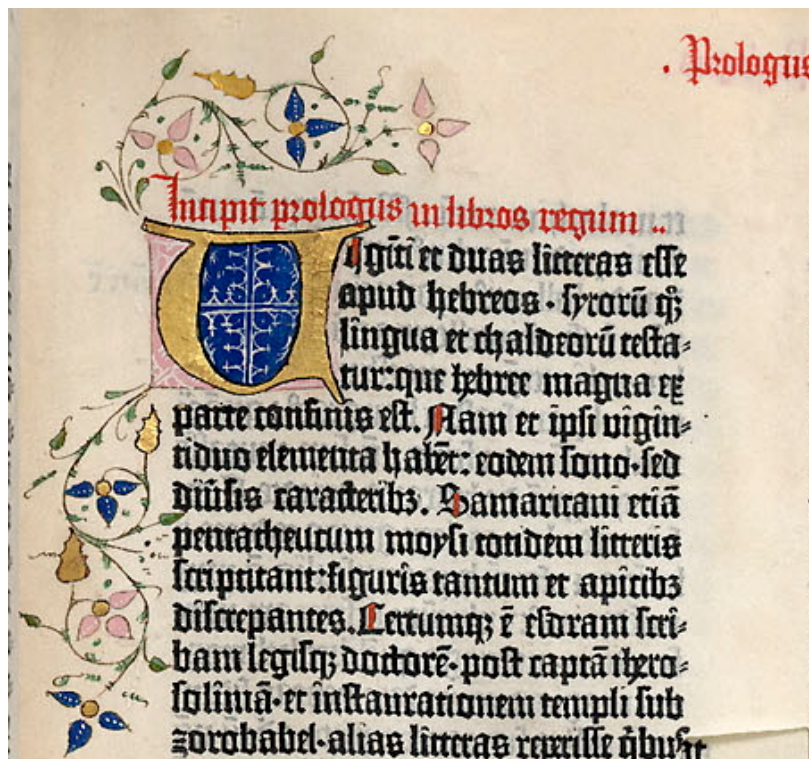 . Prologus
Incipit prologus in libros regum ..
Viginti et duas litteras esse
apud hebreos · syrorū qꝫ
lingua et chaldeorū testa⸗
tur: que hebree magna ex
parte confinis est. Nam et ipsi vigin⸗
tiduo elementa habēt: eodem sono · sed
diūsis caracteribꝫ. Samaritani etiā
pentatheucum moysi totidem litteris
scriptitant: figuris tantum et apicibꝫ
discrepantes. Certumqꝫ ē esdram scri⸗
bam legisqꝫ doctorē · post captā ihero⸗
solimā · et instaurationem templi sub
zorobabel · alias litteras reperisse